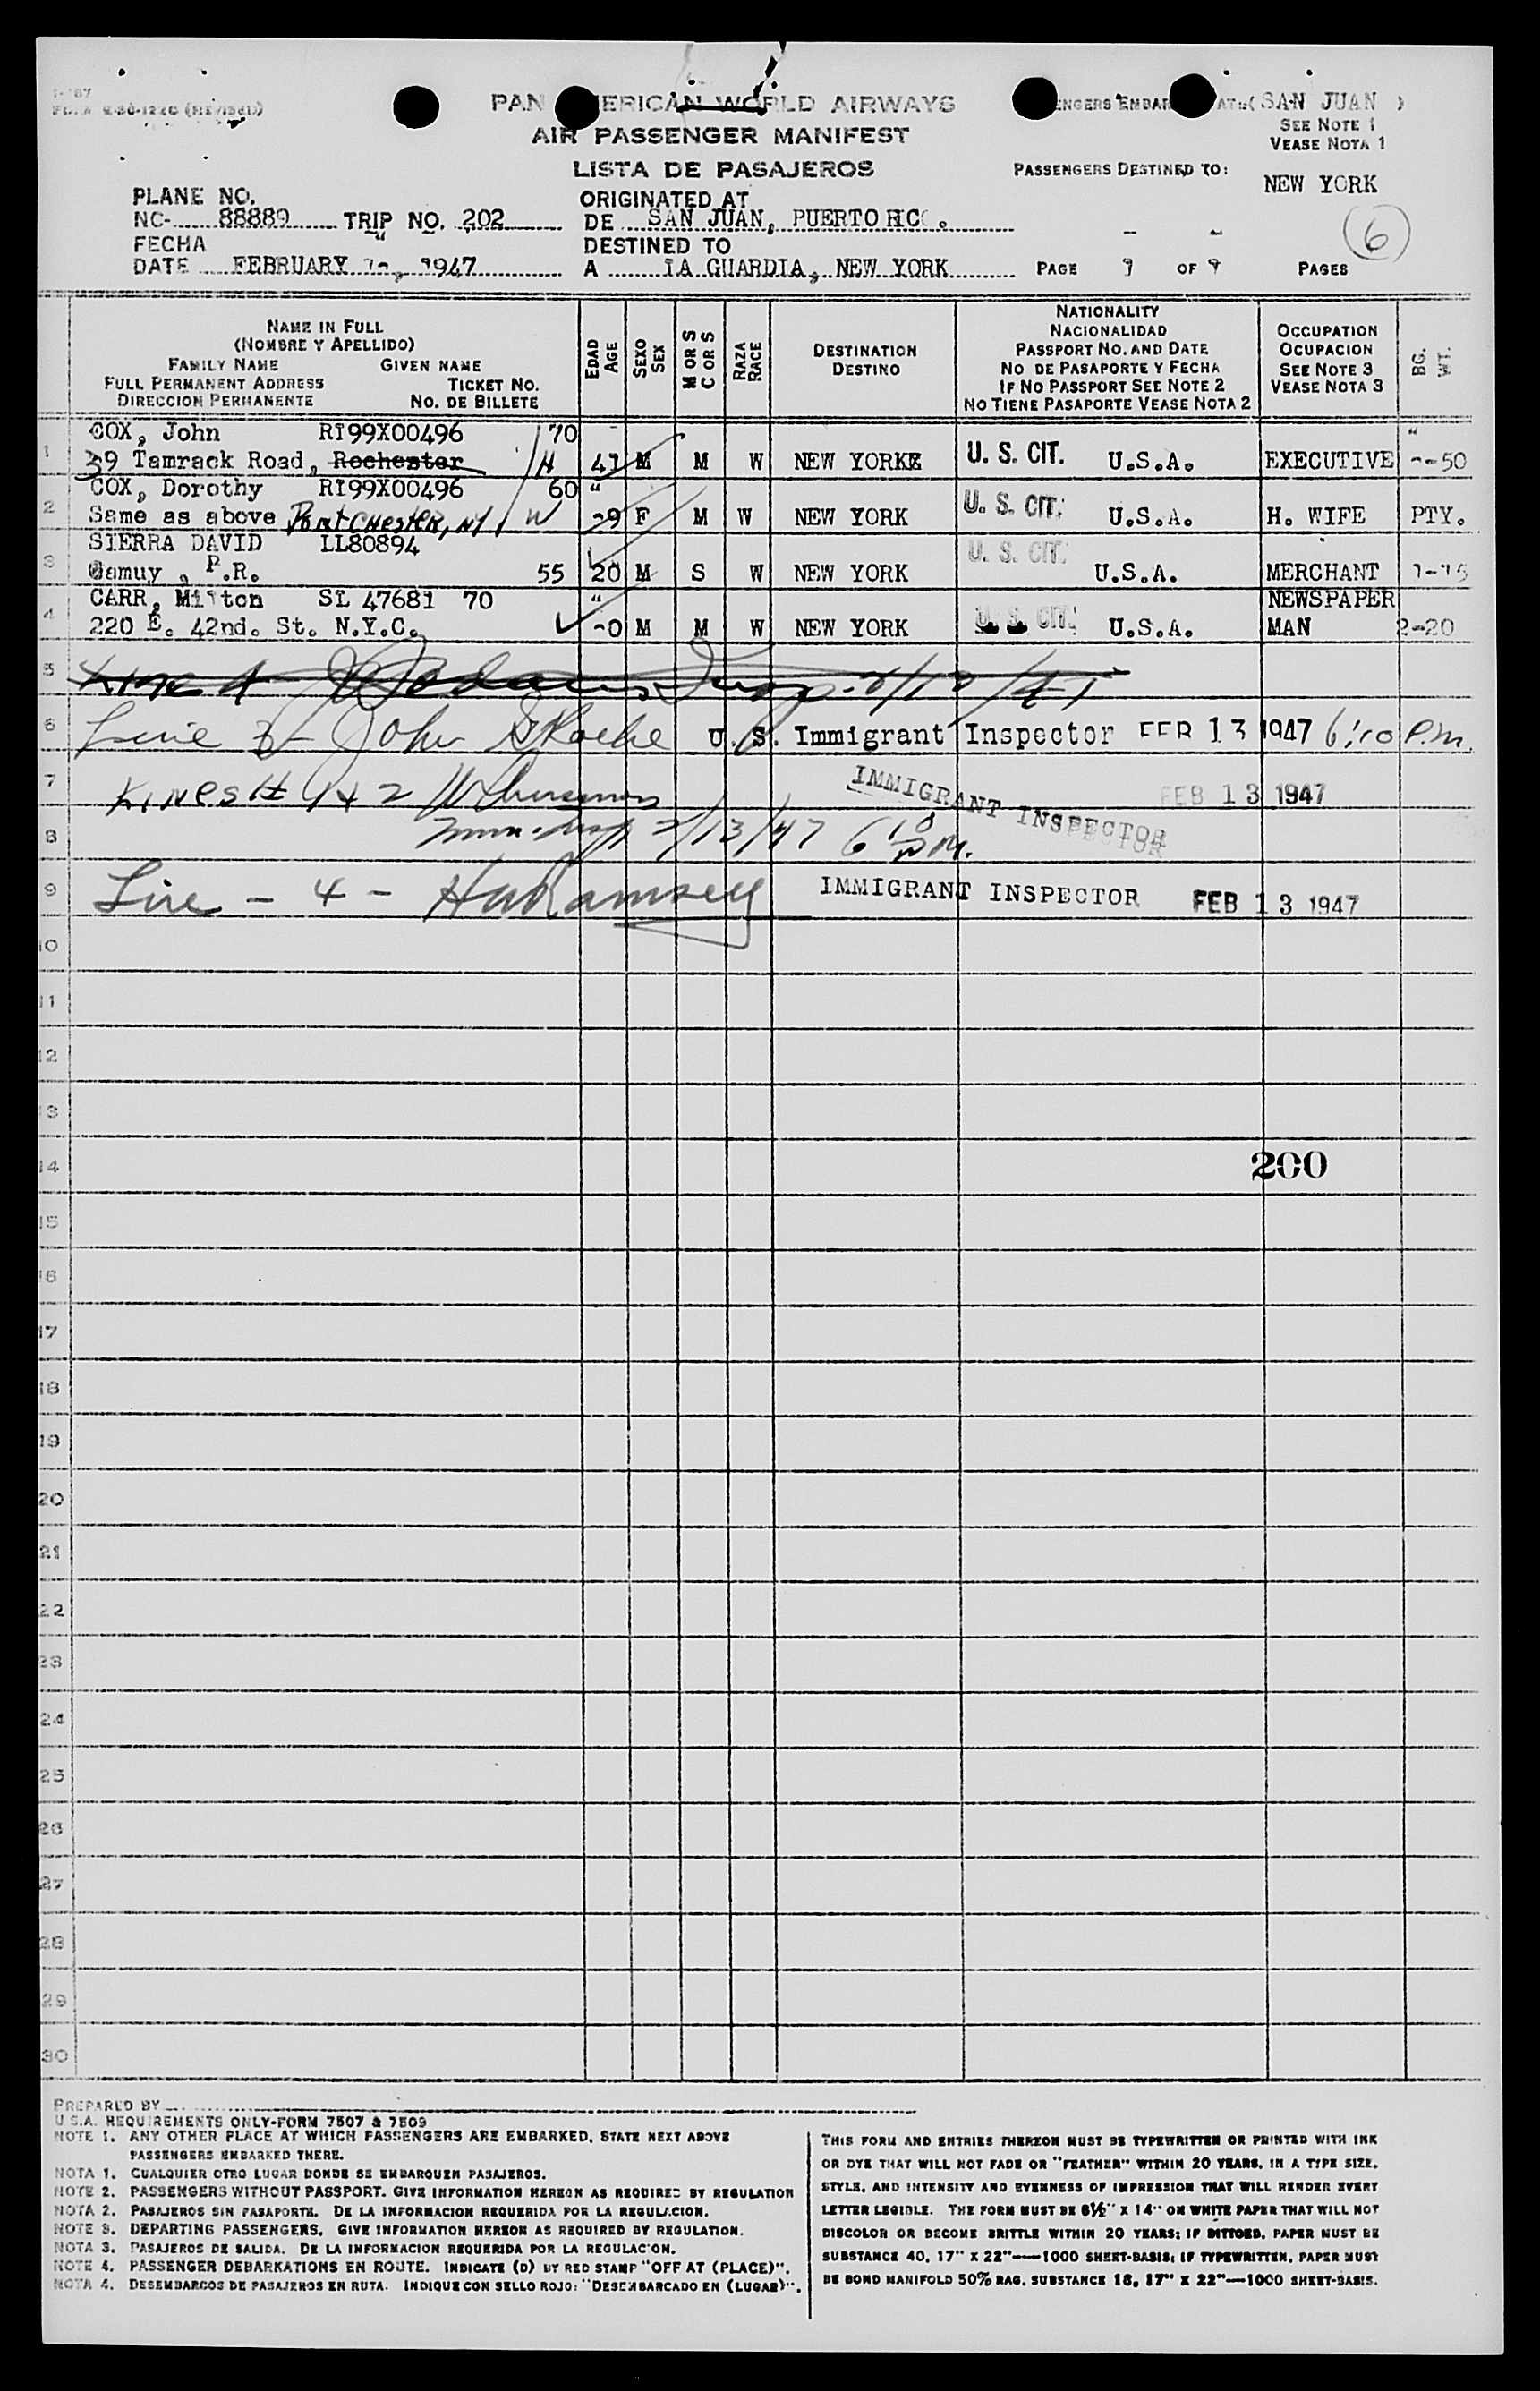 PAN AMERICAN WORLD AIRWAYS
AIR PASSENGER MANIFEST
LISTA DE PASAJEROS
(SAN JUAN )
SEE NOTE 1
VEASE NOTA 1
PASSENGERS DESTINED TO:
NEW YORK
6
PLANE NO.
NC- 88889 TRIP NO. 202
ORIGINATED AT
DE SAN JUAN, PUERTO RICO.
FECHA
DATE FEBRUARY 1947
DESTINED TO
A LA GUARDIA, NEW YORK
PAGE OF PAGES
NAME IN FULL
(NOMBRE Y APELLIDO)
FAMILY NAME GIVEN NAME
FULL PERMANENT ADDRESS TICKET NO.
DIRECCION PERMANENTE NO. DE BILLETE
EDAD AGE
SEXO SEX
M OR S C OR S
RAZA RACE
DESTINATION
DESTINO
NATIONALITY
NACIONALIDAD
PASSPORT NO. AND DATE
NO DE PASAPORTE Y FECHA
IF NO PASSPORT SEE NOTE 2
NO TIENE PASAPORTE VEASE NOTA 2
OCCUPATION
OCUPACION
SEE NOTE 3
VEASE NOTA 3
BG. WT.
1 COX, John RI99X00496 70
39 Tamrack Road, Rochester H M M W NEW YORK U. S. CIT. U.S.A. EXECUTIVE 50
2 COX, Dorothy RI99X00496 60
Same as above Port Chester, NY W F M W NEW YORK U. S. CIT. U.S.A. H. WIFE PTY.
3 SIERRA DAVID LL80894
Camuy , P.R. 55 20 M S W NEW YORK U. S. CIT. U.S.A. MERCHANT
4 CARR, Milton SL 47681 70 NEWSPAPER
220 E. 42nd. St. N.Y.C. M M W NEW YORK U. S. CIT. U.S.A. MAN 2-20
5
6 Line 3 - John S Roche U. S. Immigrant Inspector FEB 13 1947 6:10 P.m.
7 Lines 1 & 2 IMMIGRANT INSPECTOR FEB 13 1947
8 2/13/47 6 10 PM.
9 Line - 4 - Ramsey IMMIGRANT INSPECTOR FEB 13 1947
10
11
12
13
14 200
15
16
17
18
19
20
21
22
23
24
25
26
27
28
29
30
PREPARED BY
U.S.A. REQUIREMENTS ONLY-FORM 7507 & 7509
NOTE 1. ANY OTHER PLACE AT WHICH PASSENGERS ARE EMBARKED, STATE NEXT ABOVE
PASSENGERS EMBARKED THERE.
NOTA 1. CUALQUIER OTRO LUGAR DONDE SE EMBARQUEN PASAJEROS.
NOTE 2. PASSENGERS WITHOUT PASSPORT. GIVE INFORMATION HEREON AS REQUIRED BY REGULATION
NOTA 2. PASAJEROS SIN PASAPORTE. DE LA INFORMACION REQUERIDA POR LA REGULACION.
NOTE 3. DEPARTING PASSENGERS. GIVE INFORMATION HEREON AS REQUIRED BY REGULATION.
NOTA 3. PASAJEROS DE SALIDA. DE LA INFORMACION REQUERIDA POR LA REGULACION.
NOTE 4. PASSENGER DEBARKATIONS EN ROUTE. INDICATE (D) BY RED STAMP "OFF AT (PLACE)".
NOTA 4. DESEMBARCOS DE PASAJEROS EN RUTA. INDIQUE CON SELLO ROJO: "DESEMBARCADO EN (LUGAR)".
THIS FORM AND ENTRIES THEREON MUST BE TYPEWRITTEN OR PRINTED WITH INK
OR DYE THAT WILL NOT FADE OR "FEATHER" WITHIN 20 YEARS, IN A TYPE SIZE,
STYLE, AND INTENSITY AND EVENNESS OF IMPRESSION THAT WILL RENDER EVERY
LETTER LEGIBLE. THE FORM MUST BE 8½" X 14" ON WHITE PAPER THAT WILL NOT
DISCOLOR OR BECOME BRITTLE WITHIN 20 YEARS; IF DITTOED, PAPER MUST BE
SUBSTANCE 40, 17" X 22"—1000 SHEET-BASIS; IF TYPEWRITTEN, PAPER MUST
BE BOND MANIFOLD 50% RAG, SUBSTANCE 16, 17" X 22"—1000 SHEET-BASIS.